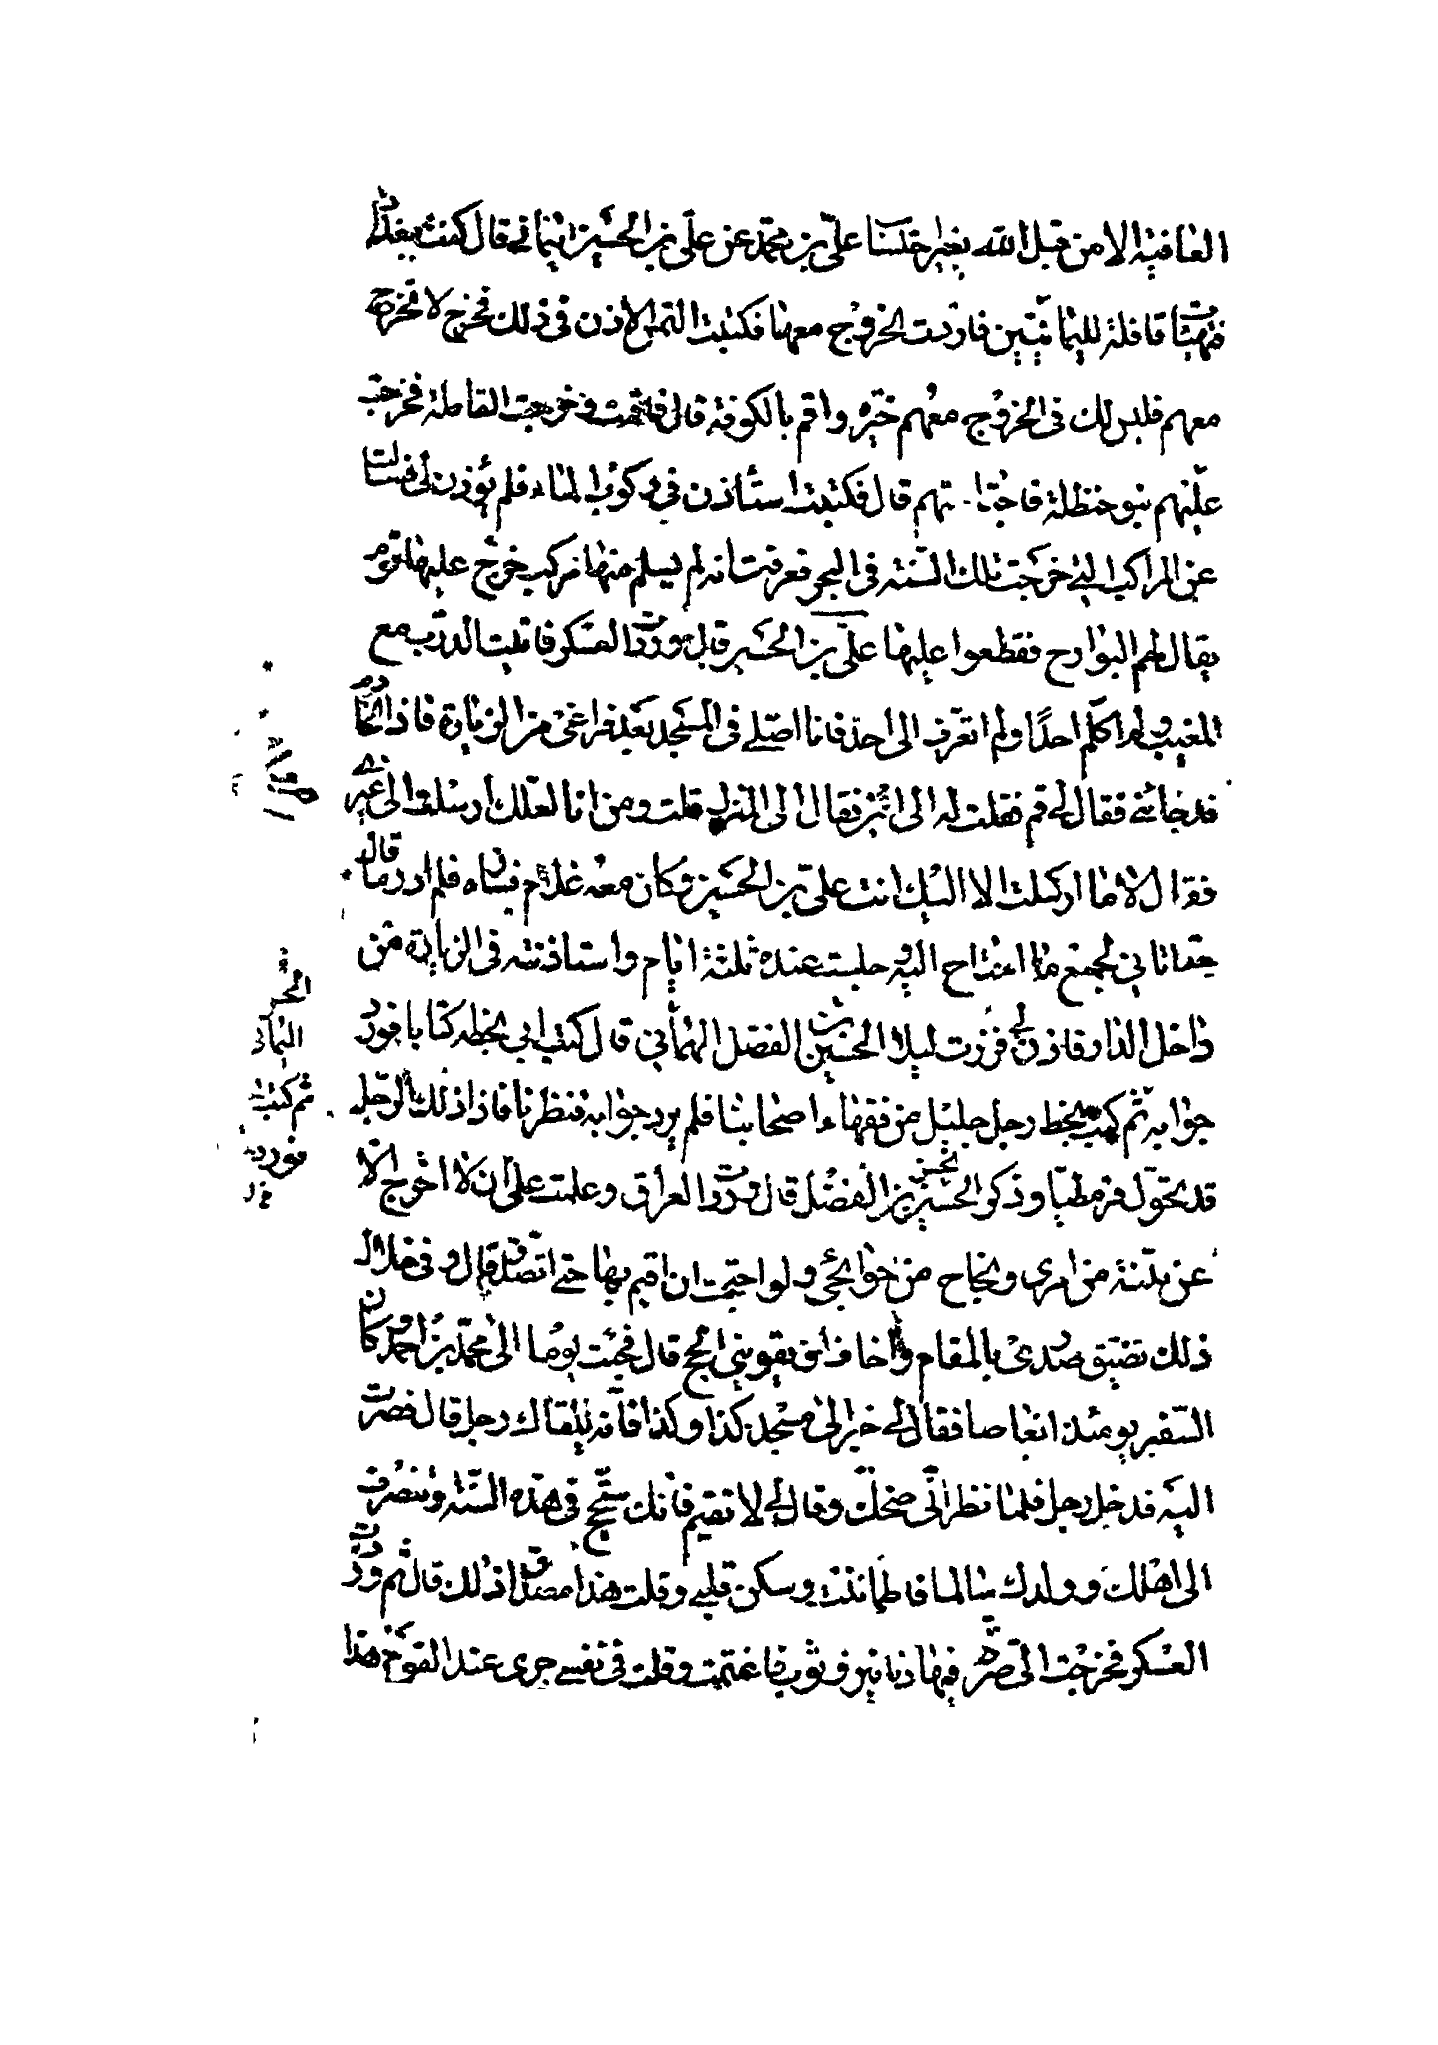 العافية الا من قبل الله بغير جلسنا علي بن محمد عن علي بن الحسين اليماني قال كنت ببغداد
فتهيأت قافلة لليمانيين فاردت الخروج معها فكتبت التمس الاذن في ذلك فخرج لا تخرج
معهم فليس لك في الخروج معهم خيرة واقم بالكوفة قال فاقمت وخرجت القافلة فخرجت
عليهم بنو حنظلة فاجتاحتهم قال فكتبت استأذن في ركوب الماء فلم يؤذن لي فسالت
عن المراكب التي خرجت تلك السنة في البحر فعرفت انه لم يسلم منها مركب خرج عليها قوم
يقال لهم البوارح فقطعوا عليها علي بن الحسين قال وردت العسكر فاتيت الدرب مع
المغيب ولم اكلم احدًا ولم اتعرف الى احد فانا اصلي في المسجد بعد فراغي من الزيارة فاذا الخادم
قد جاءني فقال لي قم فقلت له الى اين فقال الى المنزل قلت ومن انا لعلك ارسلت الى غيري
فقال لا ما ارسلت الا اليك انت علي بن الحسين وكان معه غلام فساره فلم ادر ما قال
حتى اتاني بجميع ما احتاج اليه وجلست عنده ثلثة ايام واستاذنته في الزيارة من
داخل الدار فاذن لي فزرت ليلا الحسين بن الفضل الهماني قال كتب ابي بخطه كتابا فورد
جوابه ثم كتب بخط رجل جليل من فقهاء اصحابنا فلم يرد جوابه فنظرنا فاذا ذلك الرجل
قد تحول قرمطيا وذكر الحسين بن الفضل قال وردت العراق وعلمت على ان لا اخرج الا
عن بينة من امري ونجاح من حوائجي ولو احتجت ان اقيم بها حتى اتصدق قال وفي خلال
ذلك تضيق صدري بالمقام واخاف ان يفوتني الحج قال فجئت يوما الى محمد بن احمد وكان
السفير يومئذ اتقاضا فقال لي خير الى مسجد كذا وكذا فانه يلقاك رجل قال فصرت
اليه فدخل رجل فلما نظر الي ضحك وقال لي لا تقيم فانك ستحج في هذه السنة وتنصرف
الى اهلك وولدك سالما فاطماننت وسكن قلبي وقلت هذا مصداق ذلك قال ثم وردت
العسكر فخرجت الي صرة فيها دنانير وثوب فاغتممت وقلت في نفسي جرى عند القوم هذا
اليماني
ثم كتبت